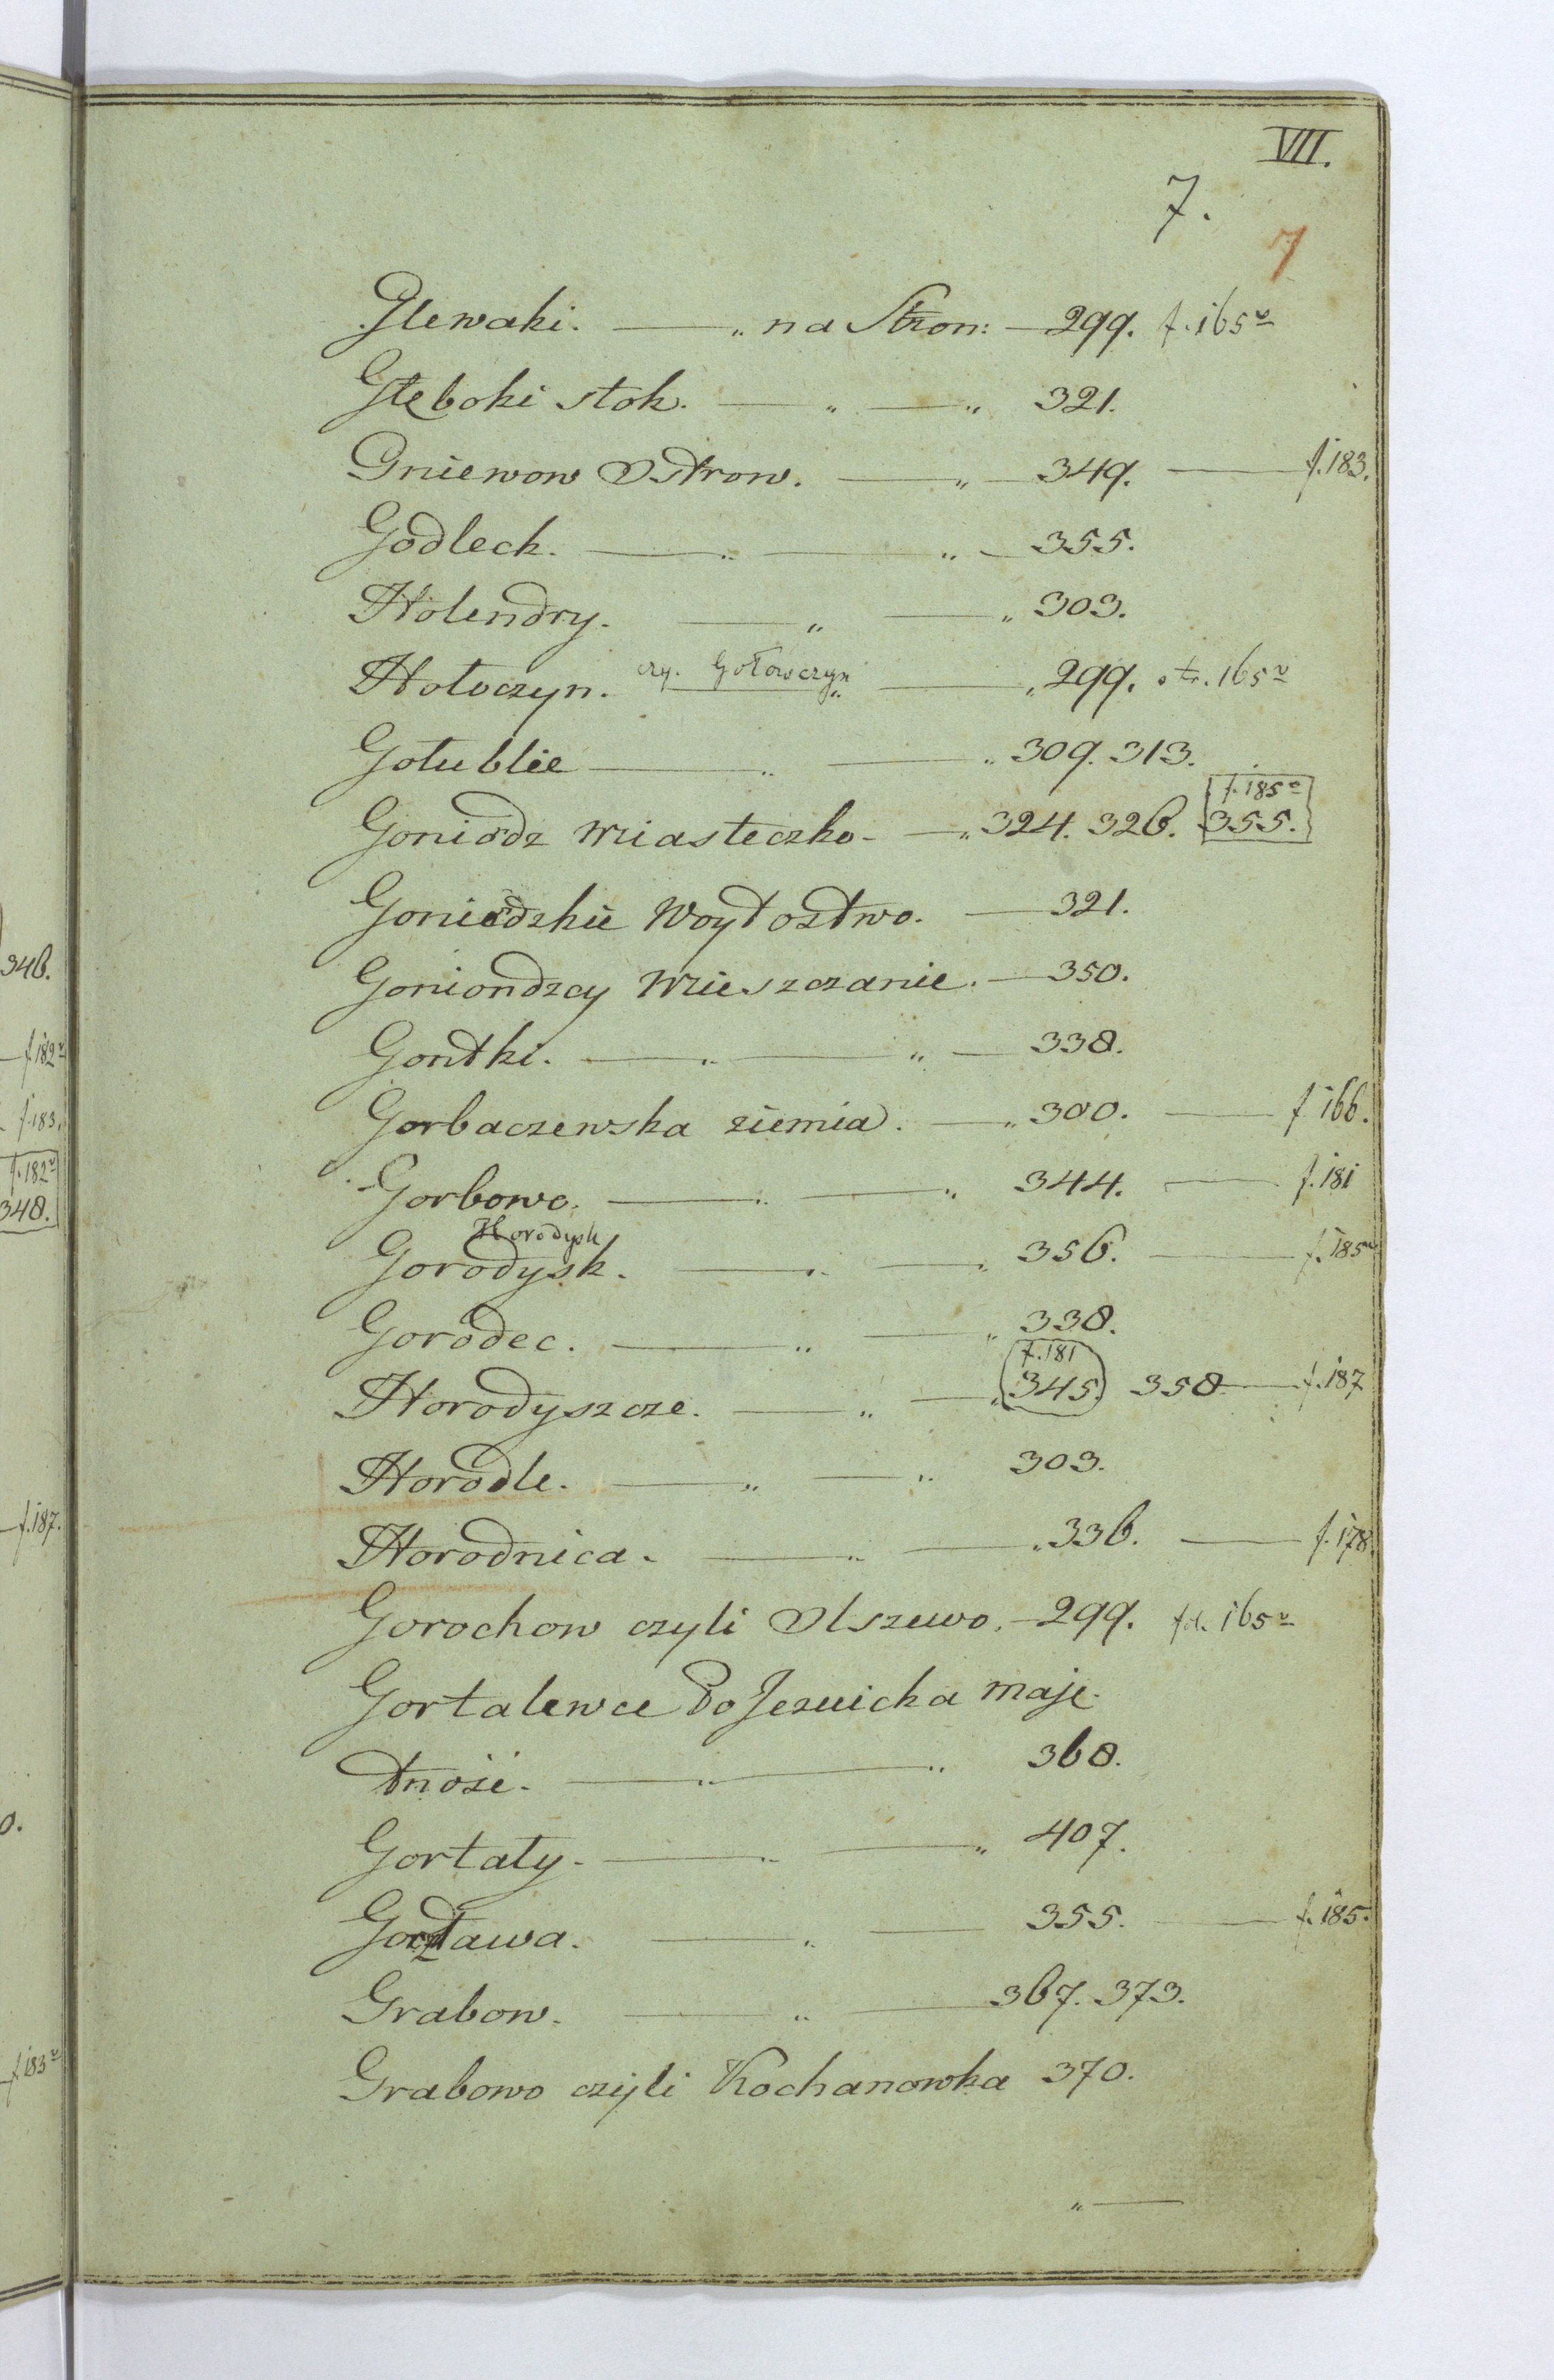 VII.
7.
7
Glewaki. — „ na Stron: — 299. f. 165v
Głęboki stok. — „ — „ 321.
Gniewow Ostrow. — „ — 349. — f. 183.
Godlech. — „ — „ — 355.
Holendry. — „ — „ 303.
Hołoczyn. czy. Gołowczyn „ — „ 299. str. 165v
Gołublie — „ — „ 309. 313.
f. 185v
Goniódz Miasteczko — „ 324. 326. 355.
Goniódzkie Woytostwo. — 321.
Goniondzcy Mieszczanie. — 350.
Gontki. — „ — „ — 338.
Gorbaczewska ziemia. — „ 300. — f 166.
Gorbowo. — „ — „ 344. — f. 181
Horodysk
Gorodysk. — „ — „ 356. — f. 185v
Gorodec. — „ — „ 338.
f. 181
Horodyszcze. — „ — „ 345. 358 — f. 187
Horodle. — „ — „ 303.
Horodnica. — „ — „ 336. — f. 178.
Gorochow czyli Olszewo. — 299. fol. 165v
Gortalewce do Jezuicka maję-
tnośi. — „ — „ 368.
Gortaty. — „ — „ 407.
— „ — 355. — f. 185.
Grabow. — „ — 367. 373.
Grabowo czyli Kochanowka 370.
„ —
346.
— f. 182v
f. 183.
f. 182v
348.
— f. 187.
0.
— f. 183v